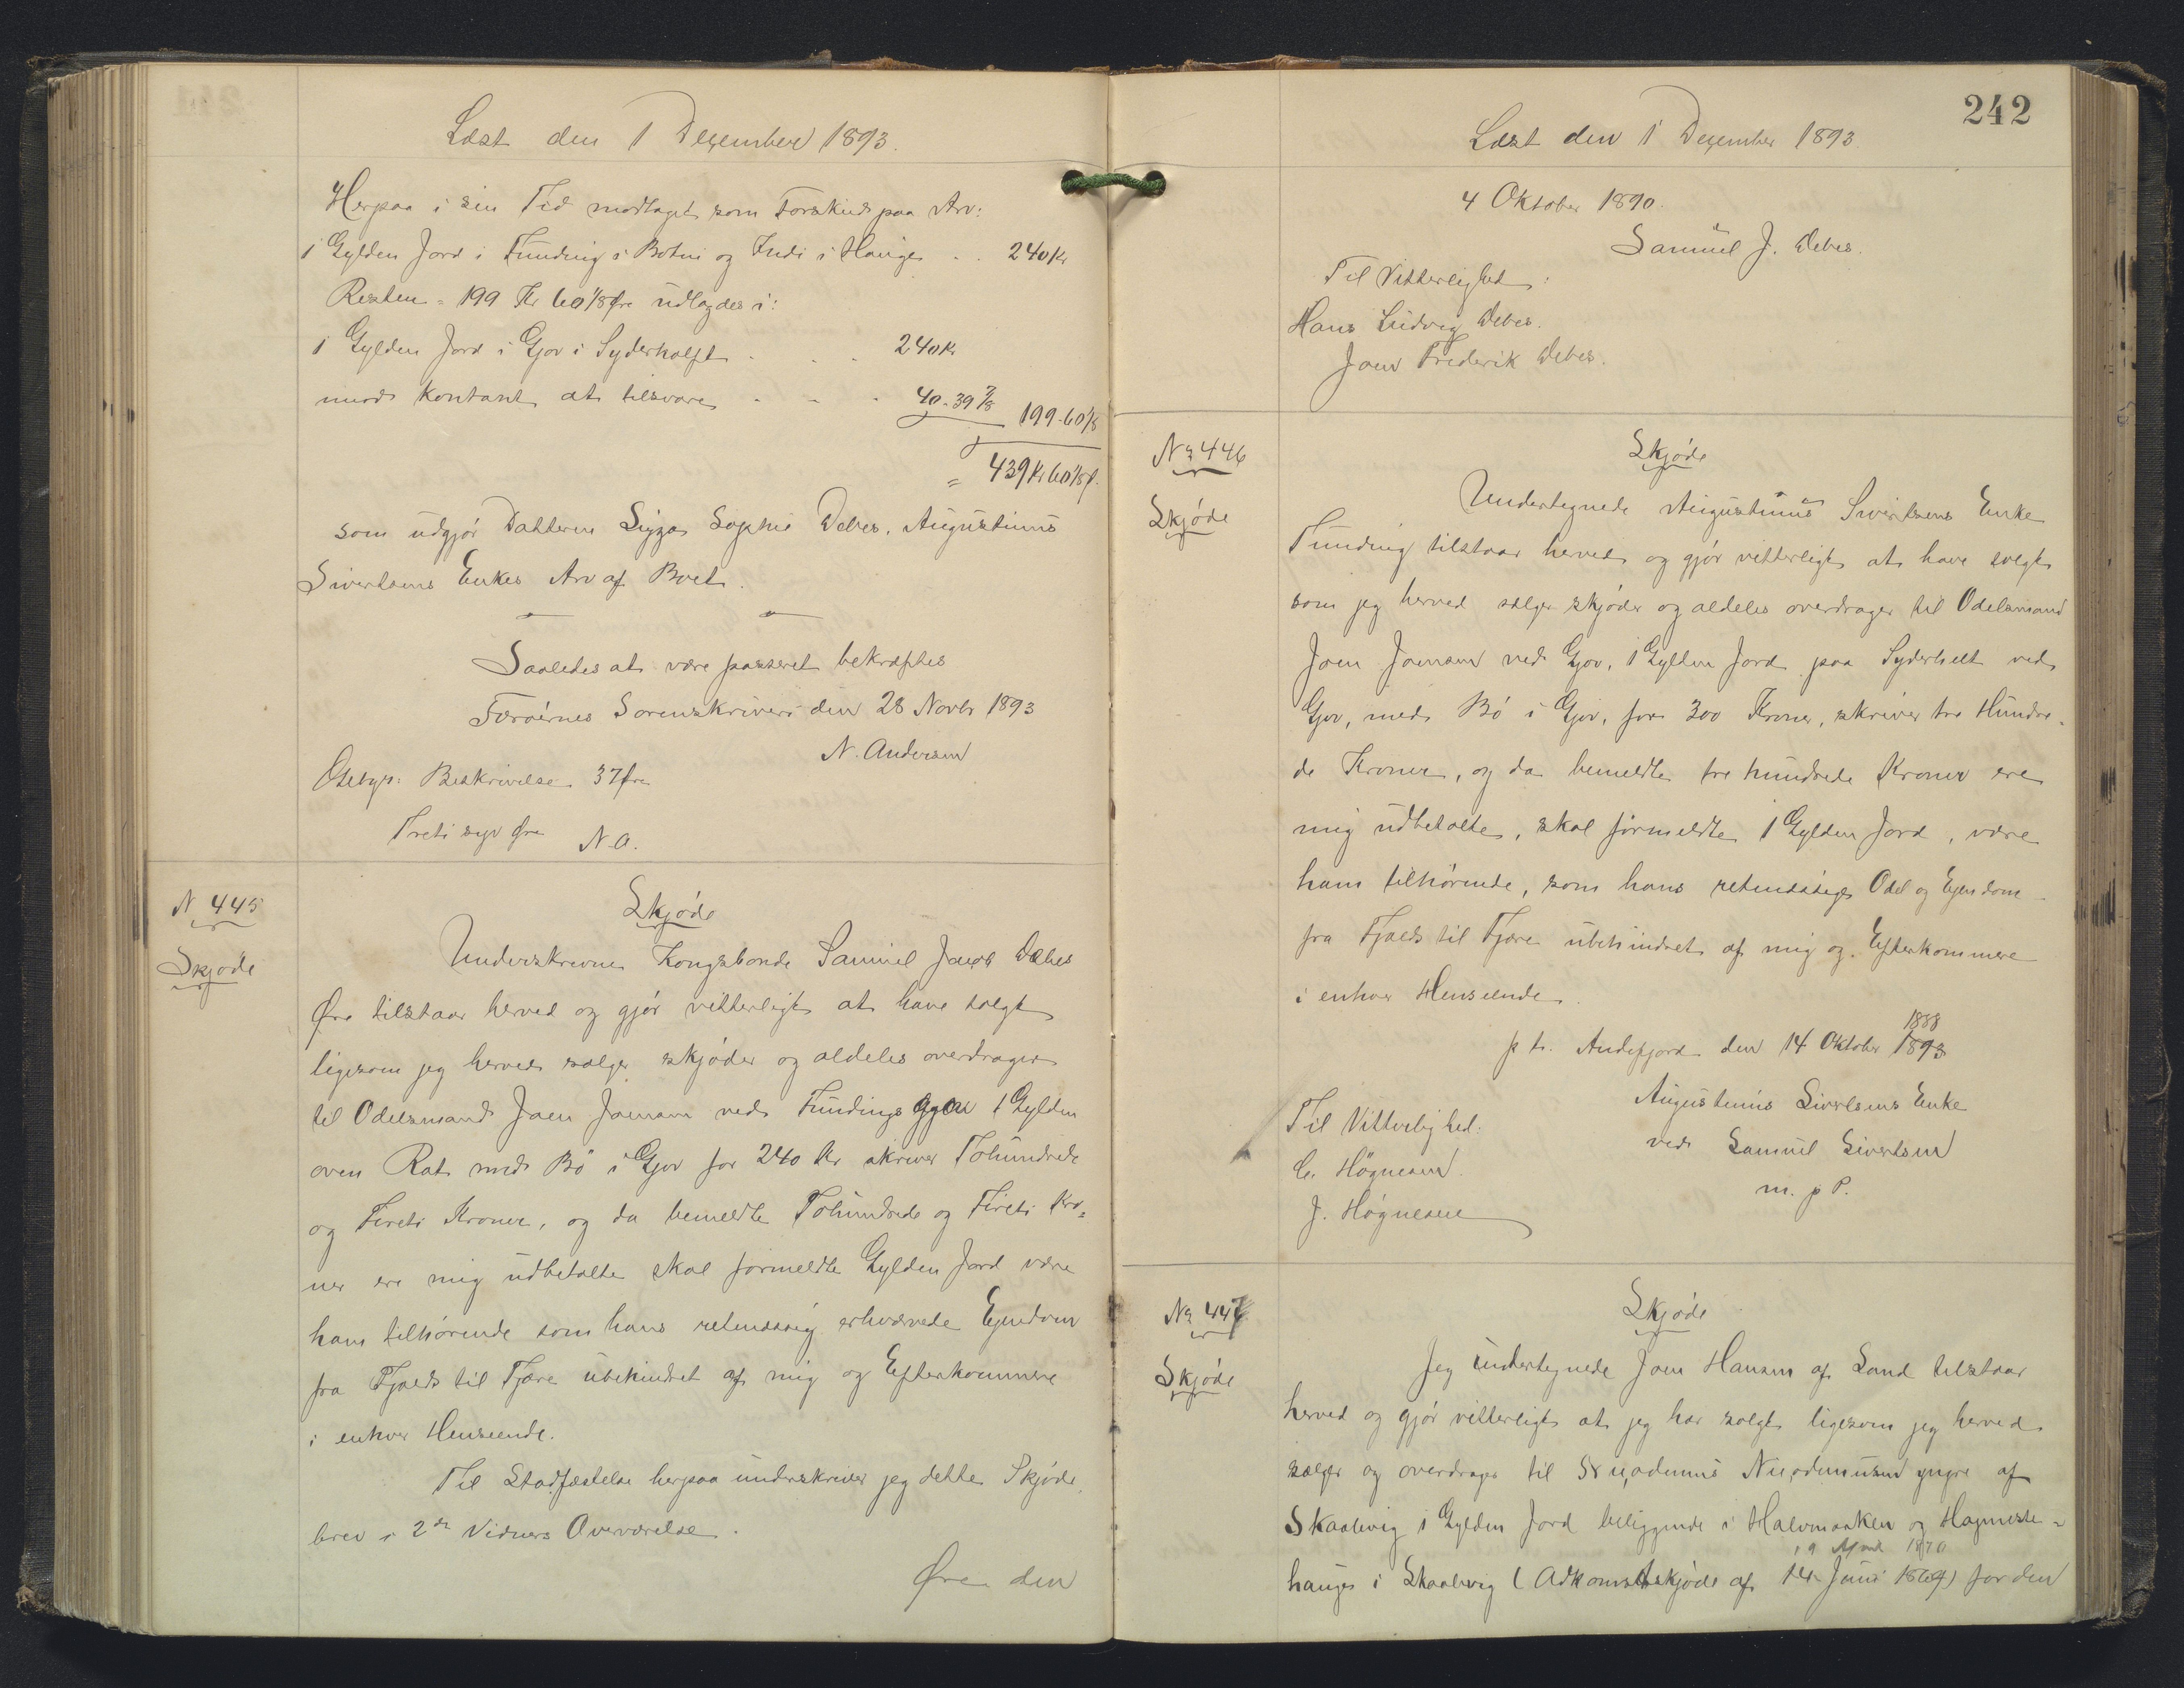 Læst den 1 Dezember 1893.
Herpaa i sin Tid modtaget som Forskud paa Arv:
1 Gylden Jord i Funding i Botni og Indi i Hauge . . 240 Kr
Resten = 199 Kr 60 1/8 Øre udlagdes i:
1 Gylden Jord i Gjov i Syderhalft . . . 240 Kr
mod kontant at tilsvare . . . 40 - 39 7/8 199 - 60 1/8
= 439 Kr 60 1/8 f.
som udgjør Datteren Sophie Debes, Augustinus
Sivertsens Enkes Arv af Boet.
Saaledes at være passeret bekræftes
Færøernes Sorenskriveri den 28 Novbr 1893
N. Andersen
Beskrivelse 37 Øre
Treti syv Øre N.A.
N 445
Skjøde
Skjøde
Underskrevne Kongsbonde Samuel Jacob Debes
Øre tilstaar herved og gjør vitterligt at have solgt
ligesom jeg herved sælger skjøder og aldeles overdrager
til Odelsmand Joen Joensen ved Fundings Gjov 1 Gylden
oven Rat med Bø i Gjov for 240 Kr skriver Tohundrede
og Fireti Kroner, og da bemeldte Tohundrede og Fireti Kro=
ner ere mig udbetalte skal formeldte Gylden Jord være
ham tilhørende som hans retmæssig erhværvede Ejendom
fra Fjæld til Fjære ubehindret af mig og Efterkommere
i enhver Henseende.
Til Stadfæstelse herpaa underskriver jeg dette Skjøde,
brev i 2de Vidners Overværelse.
Øre den
242
Læst den 1 Dezember 1893.
4 Oktober 1890.
Samuel J. Debes.
Til Vitterlighed:
Hans Ludvig Debes.
Joen Frederik Debes.
No 446
Skjøde
Skjøde
Undertegnede Augustinus Sivertsens Enke
Funding tilstaar herved og gjør vitterligt at have solgt
som jeg herved sælger skjøder og aldeles overdrager til Odelsmand
Joen Joensen ved Gjov, 1 Gylden Jord paa Syderhelt ved
Gjov, med Bø i Gjov, for 300 Kroner, skriver tre Hundre=
de Kroner, og da bemeldte tre hundrede Kroner ere
mig udbetalte, skal førmeldte 1 Gylden Jord, være
ham tilhørende, som hans retmæssige Odel og Ejendom
fra Fjæld til Fjære ubehindret af mig og Efterkommere
i enhver Henseende.
1888
p. t. Andefjord den 14 Oktober 1893
Augustinus Sivertsens Enke
Til Vitterlighed:
ved Samuel Sivertsen
C. Høgnesen.
m. p P.
J. Høgnesen
No 447
Skjøde
Skjøde
Jeg undertegnede Joen Hansen af Sand tilstaar
herved og gjør vitterligt at jeg har solgt ligesom jeg herved
sælger og overdrager til Nicodemus Nicodemusen yngre af
Skaalevig 1 Gylden Jord beliggende i Halvmarken og Hagmeste=
19 April 1870
hauge i Skaalevig (Adkomstskjøde af 14 Juni 1869) for den